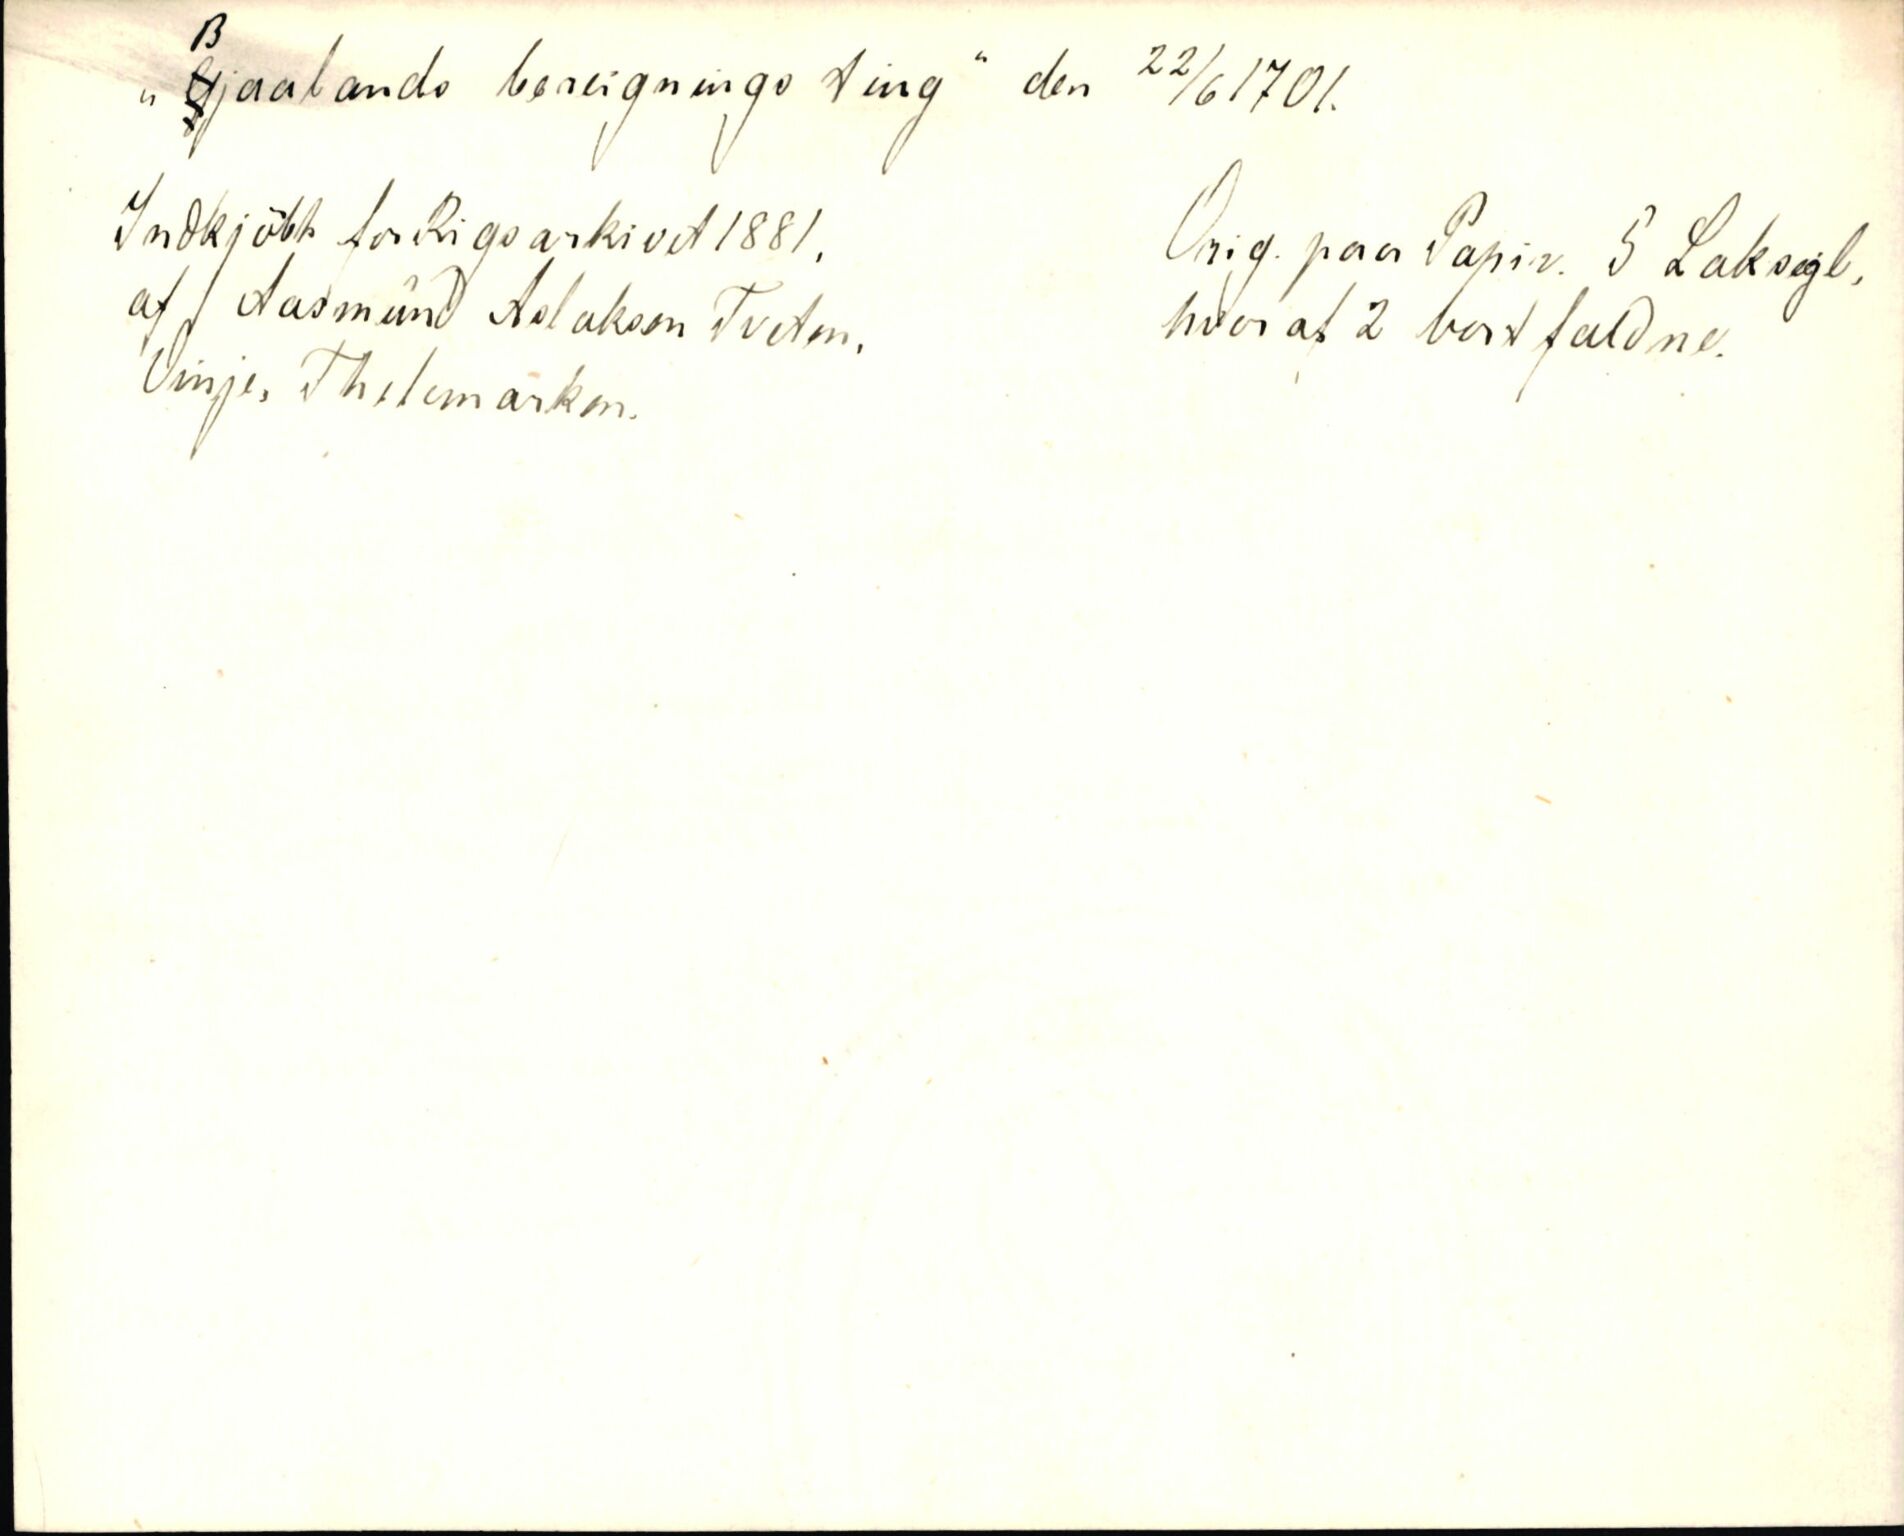 „Bjaalands bereignings ting“ den 22/6 1701.
Indkjöbt for Rigsarkivet 1881,
af Aasmund Aslaksen Tveten,
Vinje, Thelemarken.
Orig. paa Papir. 5 Laksegl,
hvoraf 2 bortfaldne.